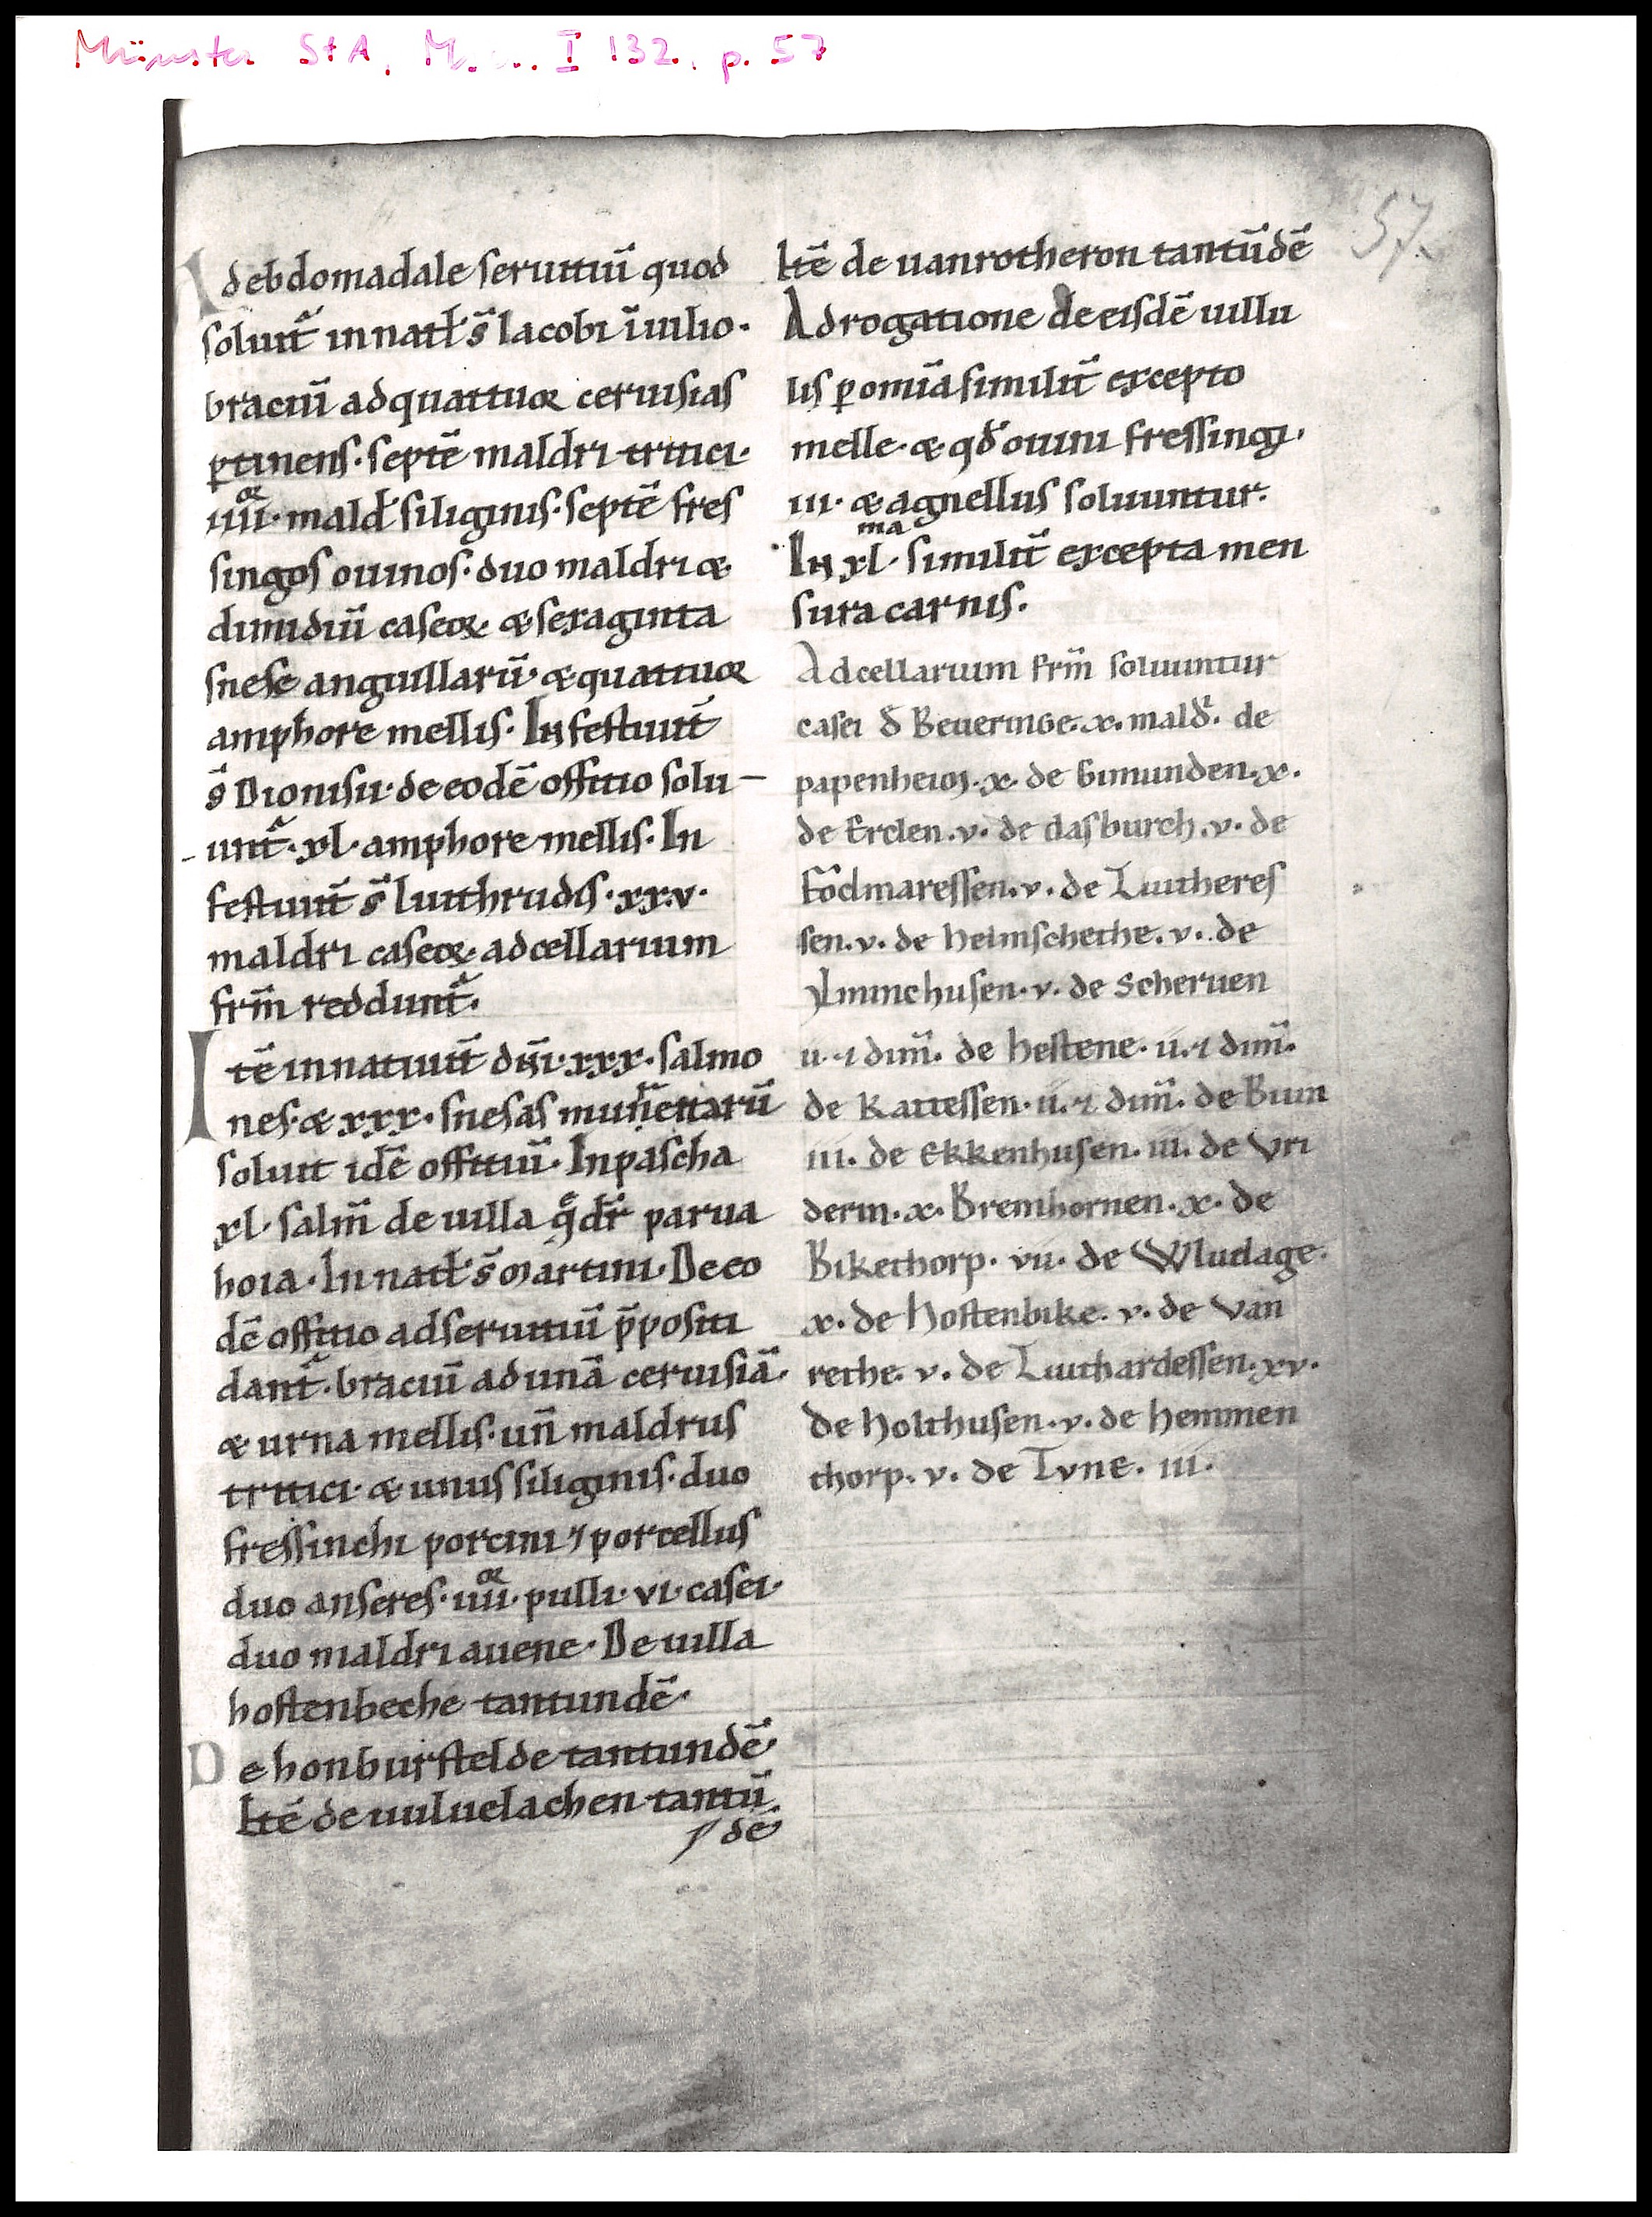 Münster StA, M... I 132, p. 57
57.
Adebdomadale seruitiū quod
soluit̄ in natł s̄ Iacobi ī iulio·
braciū ad quattuor ceruisias
ꝑtinens· septē maldri tritici·
iiii^or· mald̄ siliginis· septē fres
singos ouinos· duo maldri &
dimidiū caseoꝝ· & sexaginta
snese anguillarū· & quattuor
amphore mellis· In festiuit̄
s̄ Dionisii· de eodē offitio solu–
unt̄· xl· amphore mellis· In
festiuit̄ s̄ Liutthrudis· xx·v·
maldri caseoꝝ· ad cellarium
frm̄ reddunt̄.
Itē in natiuit̄ dn̄i· xxx· salmo
nes· & xxx· snesas mun̄enarū
soluit idē offitiū· In pascha
xl· salm̄ de uilla q̄ dr̄ parua
hoia· In natł s̄ Martini· De eo
dē offitio ad seruitiū p̄positi
dant̄· braciū ad unā ceruisiā·
& urna mellis· un̄ maldrus
tritici· & unus siliginis· duo
fressinchi porcini ⁊ porcellus
duo anseres· iiii^or· pulli· vi· casei·
duo maldri auene· De uilla
hostenbeche tantundē·
De honburstelde tantundē·
Itē de uuluelachen tantū
dē
Itē de uanrotheron tantūdē
Ad rogatione de eisdē uillu
lis ꝑ omīa similit̄ excepto
melle· & qd̄ ouini fressingi·
iii· & agnellus soluuntur.
In xl^ma· similit̄ excepta men
sura carnis.
Ad cellarium frm̄ soluuntur
casei đ Beueringe. x. mald̄. de
papenheim. x. de Gimunden. x.
de Erclen. v. de dasburch. v. de
Fodmaressen. v. de Liutheres
sen. v. de helmschethe. v. de
ẏlminchusen. v. de Scheruen
ii. ⁊ dim̄. de hestene. ii. ⁊ dim̄.
de Kattessen. ii. ⁊ dim̄. de Bun
iii. de Ekkenhusen. iii. de Vri
derm. x. Bremhornen. x. de
Bikethorp. vii. de Wludage.
x. de hostenbike. v. de Van
rethe. v. de Liuthardessen. xv.
de holthusen. v. de hemmen
thorp. v. de Tvne. iii.